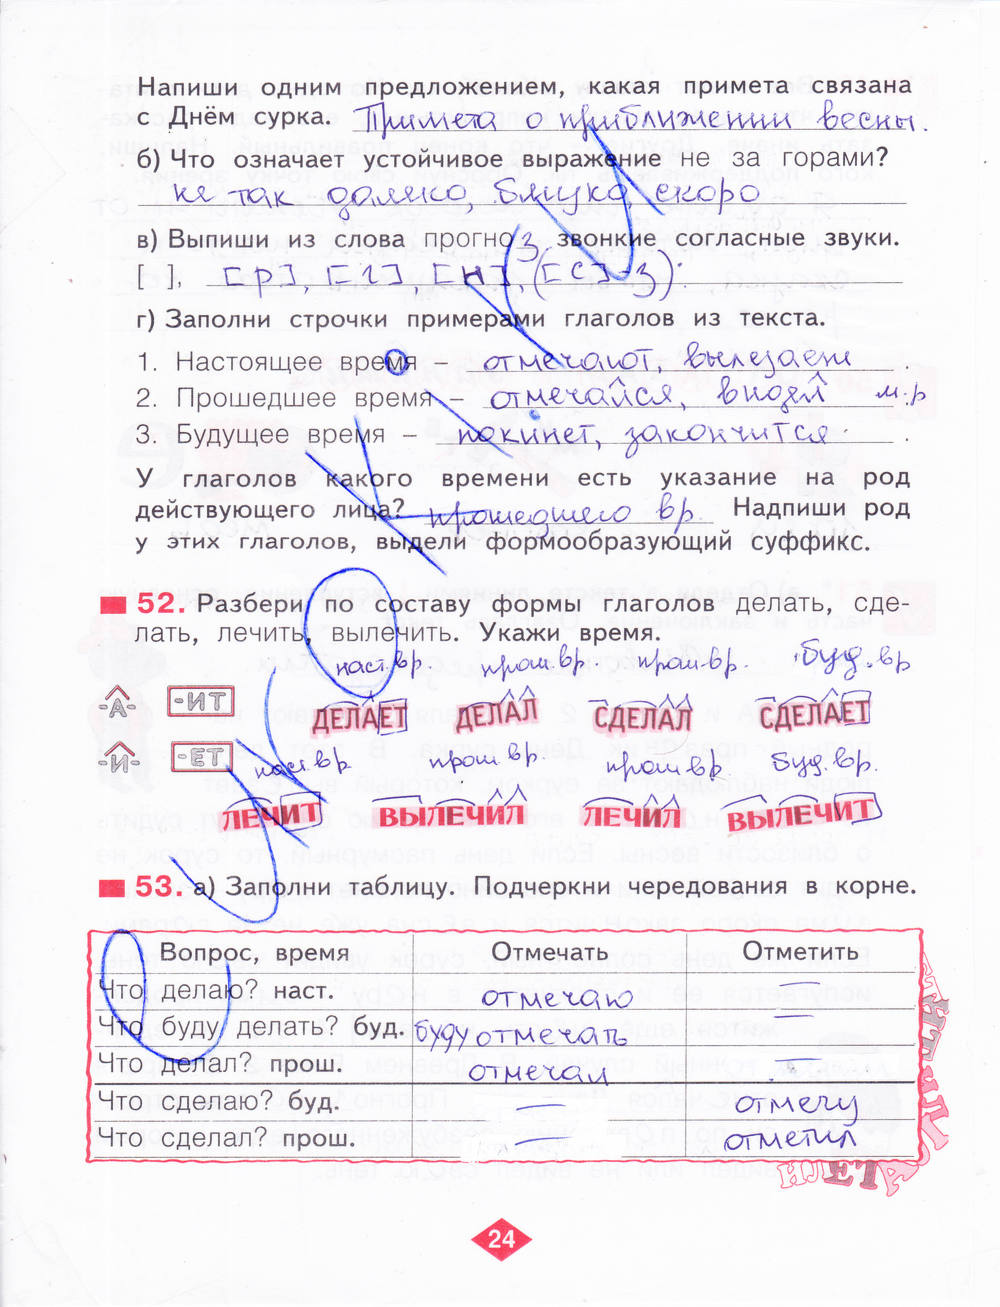 Напиши одним предложением, какая примета связана
с Днём сурка. Примета о приближении весны.
б) Что означает устойчивое выражение не за горами?
не так далеко, близко, скоро
в) Выпиши из слова прогноз звонкие согласные звуки.
[ ], [р], [г], [н], ([с]-з).
г) Заполни строчки примерами глаголов из текста.
1. Настоящее время – отмечают, вылезает
2. Прошедшее время – отмечался, видел м.р
3. Будущее время – покинет, закончится.
У глаголов какого времени есть указание на род
действующего лица? прошедшего вр. Надпиши род
у этих глаголов, выдели формообразующий суффикс.
52. Разбери по составу формы глаголов делать, сде-
лать, лечить, вылечить. Укажи время.
наст.вр. прош.вр. прош.вр. буд.вр
-А- -ИТ ДЕЛАЕТ ДЕЛАЛ СДЕЛАЛ СДЕЛАЕТ
-И- -ЕТ наст.вр прош.вр. прош.вр буд.вр.
ЛЕЧИТ ВЫЛЕЧИЛ ЛЕЧИЛ ВЫЛЕЧИТ
53. а) Заполни таблицу. Подчеркни чередования в корне.
Вопрос, время Отмечать Отметить
Что делаю? наст. отмечаю —
Что буду делать? буд. буду отмечать —
Что делал? прош. отмечал —
Что сделаю? буд. — отмечу
Что сделал? прош. — отметил
24